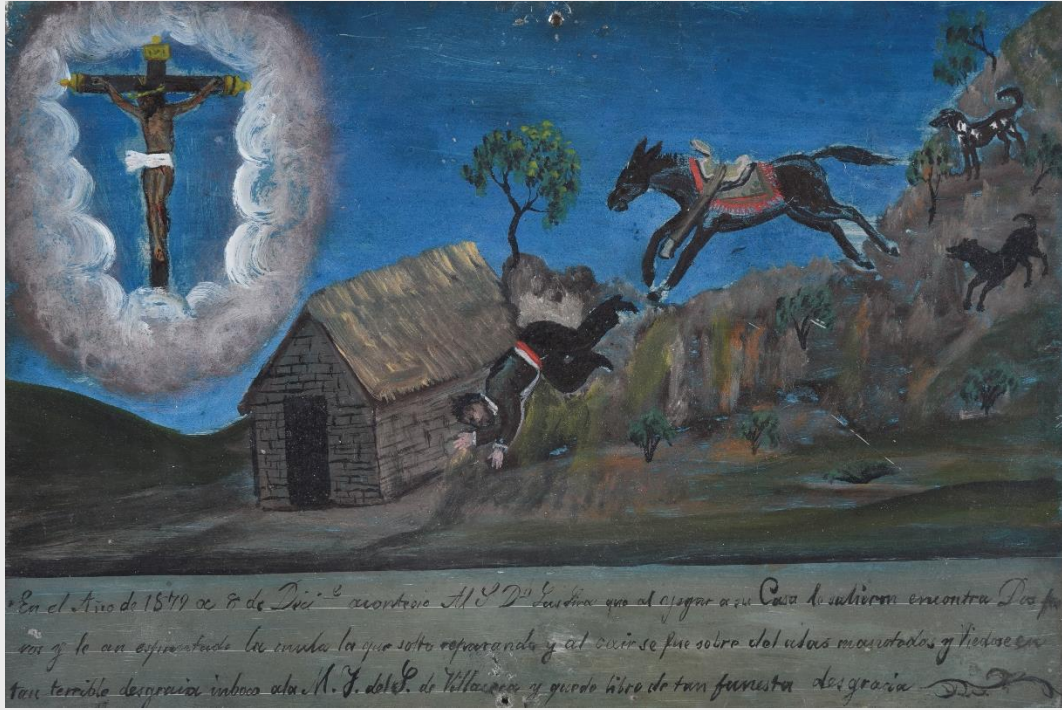 En el Año de 1879 a 8 de Dici.e acontecio Al S. Dn que al a su Casa le salieron encontra Dos
y le an espantado la mula la que solto reparando y al cair se fue sobre del a las manotadas y Viedose en
tan terrible desgracia inboco ala M. Y. del S. de Villaceca y quedo libre de tan funesta desgracia